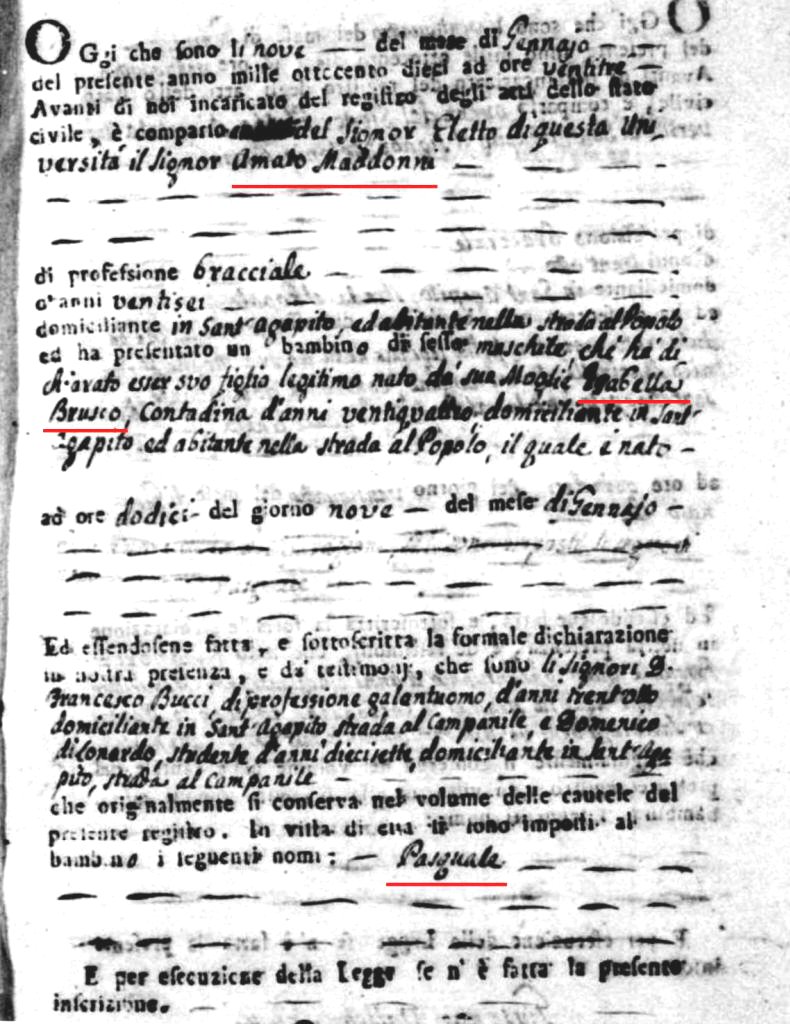 OGgi che sono li nove — del mese di Gennajo —
del presente anno mille ottecento dieci ad ore ventitre —
Avanti di noi incaricato del registro degli atti dello stato
civile, è comparso del Signor Eletto di questa Uni
versitá il Signor Amato Maddonni —
di professione bracciale —
d'anni ventisei
domiciliante in Sant'Agapito, ed abitante nella strada al Popolo
ed ha presentato un bambino di sesso maschile, che ha di
chiarato esser svo figlio legitimo nato da sua Moglie Isabella
Brusco, Contadina d'anni ventiquattro, domiciliante in Sant'
Agapito ed abitante nella strada al Popolo, il quale è nato -
ad ore dodici - del giorno nove — del mese di Gennajo -
Ed essendosene fatta, e sottoscritta la formale dichiarazione
in nostra presenza, e da' testimonj, che sono li Signori D.
Francesco Bucci, di professione galantuomo, d'anni trentotto
domiciliante in Sant'Agapito strada al Campanile, e Domenico
di Lonardo, studente d'anni diecisette, domiciliante in Sant'Aga
pito, strada al Campanile
che originalmente si conserva nel volume delle cautele del
presente registro. In vista di essa si sono imposti al
bambino i seguenti nomi: — Pasquale
E per esecuzione della Legge se n'è fatta la presente
inscrizione.